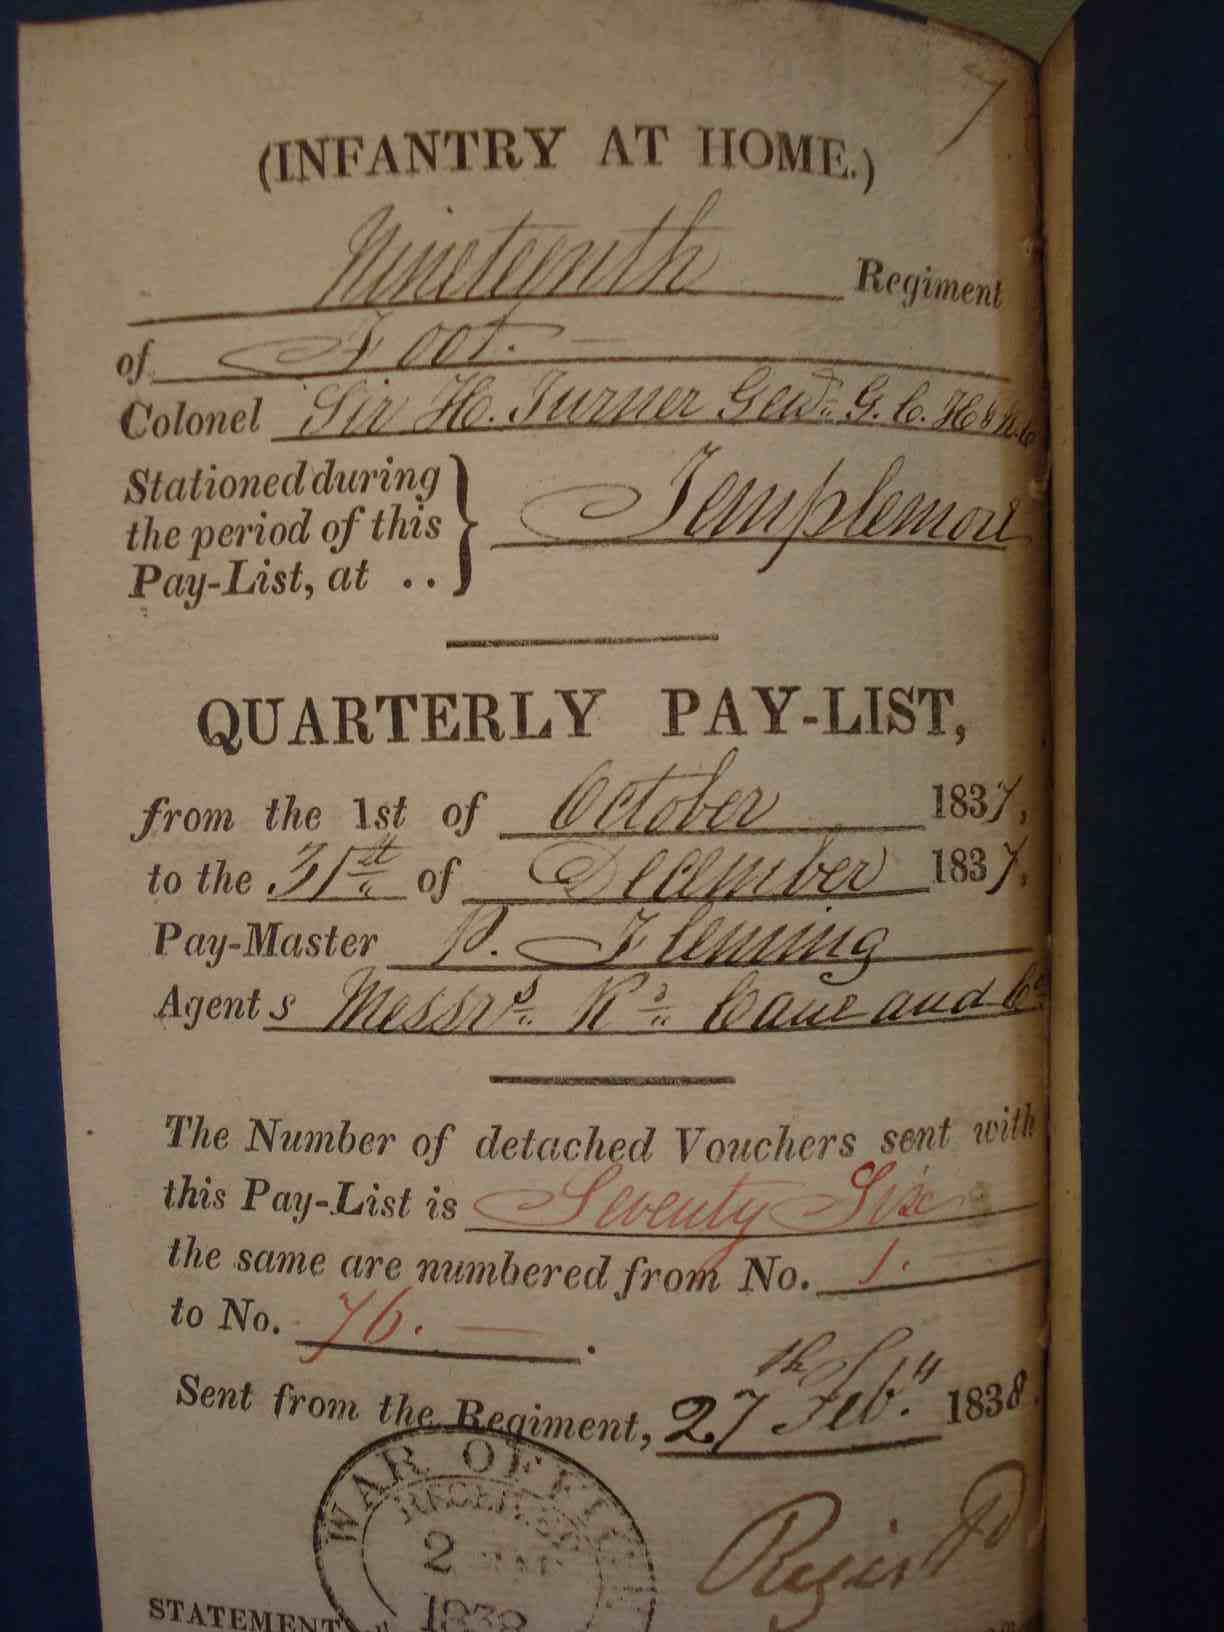 7
(INFANTRY AT HOME.)
Nineteenth Regiment
of Foot. —
Colonel Sir H. Turner G. C. H &
Stationed during
the period of this
Pay-List, at ..
} Templemore
QUARTERLY PAY-LIST,
from the 1st of October 1837,
to the 31st of December 1837,
Pay-Master P. Fleming
Agents Messrs Rd Cane and Co
The Number of detached Vouchers sent with
this Pay-List is Seventy Six
the same are numbered from No. 1.
to No. 76. — .
Sent from the Regiment, 27th Feby 1838.
WAR OFFICE
RECEIVED
2 MAR
1838
Regisd
STATEMENT